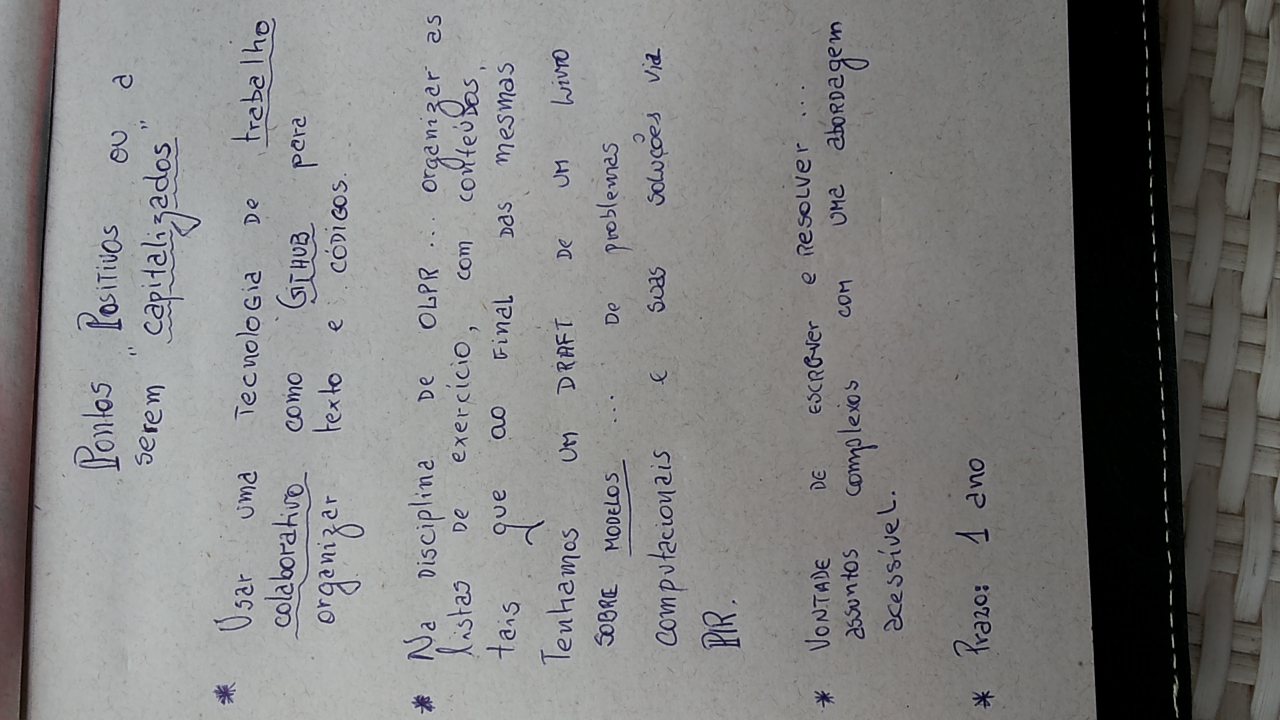 Pontos Positivos ou a
serem "capitalizados"
* Usar uma Tecnologia De trabalho
colaborativo como GITHUB para
organizar texto e códigos.
* Na Disciplina De OLPR... organizar as
listas De exercício, com conteúdos,
tais que ao Final Das mesmas
Tenhamos um DRAFT DE UM Livro
SOBRE MODELOS ... De problemas
computacionais e suas soluções via
PIR.
* VONTADE DE ESCREVER e RESOLVER...
assuntos complexos com UMA aBORDagem
acessível.
* Prazo: 1 ano